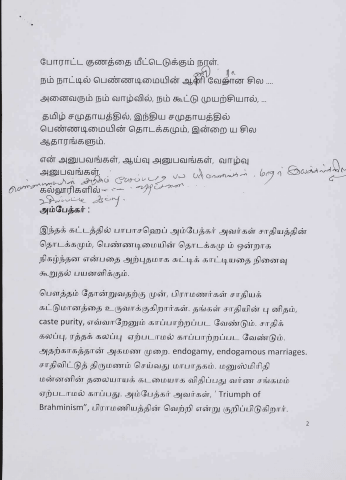 போராட்ட குணத்தை மீட்டெடுக்கும் நாள்.
நம் நாட்டில் பெண்ணடிமையின் ஆணி வேதான சில ....
அனைவரும் நம் வாழ்வில், நம் கூட்டு முயற்சியால், ...
தமிழ் சமுதாயத்தில், இந்திய சமுதாயத்தில்
பெண்ணடிமையின் தொடக்கமும், இன்றை ய சில
ஆதாரங்களும்.
என் அனுபவங்கள், ஆய்வு அனுபவங்கள், வாழ்வு
அனுபவங்கள்,
கல்லூரிகளில்
அம்பேத்கர் :
இந்தக் கட்டத்தில் பாபாசஹெப் அம்பேத்கர் அவர்கள் சாதியத்தின்
தொடக்கமும், பெண்ணடிமையின் தொடக்கமு ம் ஒன்றாக
நிகழ்ந்தன என்பதை அற்புதமாக சுட்டிக் காட்டியதை நினைவு
கூறுதல் பயனளிக்கும்.
பௌத்தம் தோன்றுவதற்கு முன், பிராமணர்கள் சாதியக்
கட்டுமானத்தை உருவாக்குகிறார்கள். தங்கள் சாதியின் பு னிதம்,
caste purity, எவ்வாறேனும் காப்பாற்றப்பட வேண்டும். சாதிக்
கலப்பு, ரத்தக் கலப்பு ஏற்படாமல் காப்பாற்றப்பட வேண்டும்.
அதற்காகத்தான் அகமண முறை. endogamy, endogamous marriages.
சாதிவிட்டுத் திருமணம் செய்வது மாபாதகம். மனுஸ்மிரிதி
மன்னனின் தலையாயக் கடமையாக விதிப்பது வர்ண சங்கமம்
ஏற்படாமல் காப்பது. அம்பேத்கர் அவர்கள், ' Triumph of
Brahminism", பிராமணியத்தின் வெற்றி என்று குறிப்பிடுகிறார்.
2